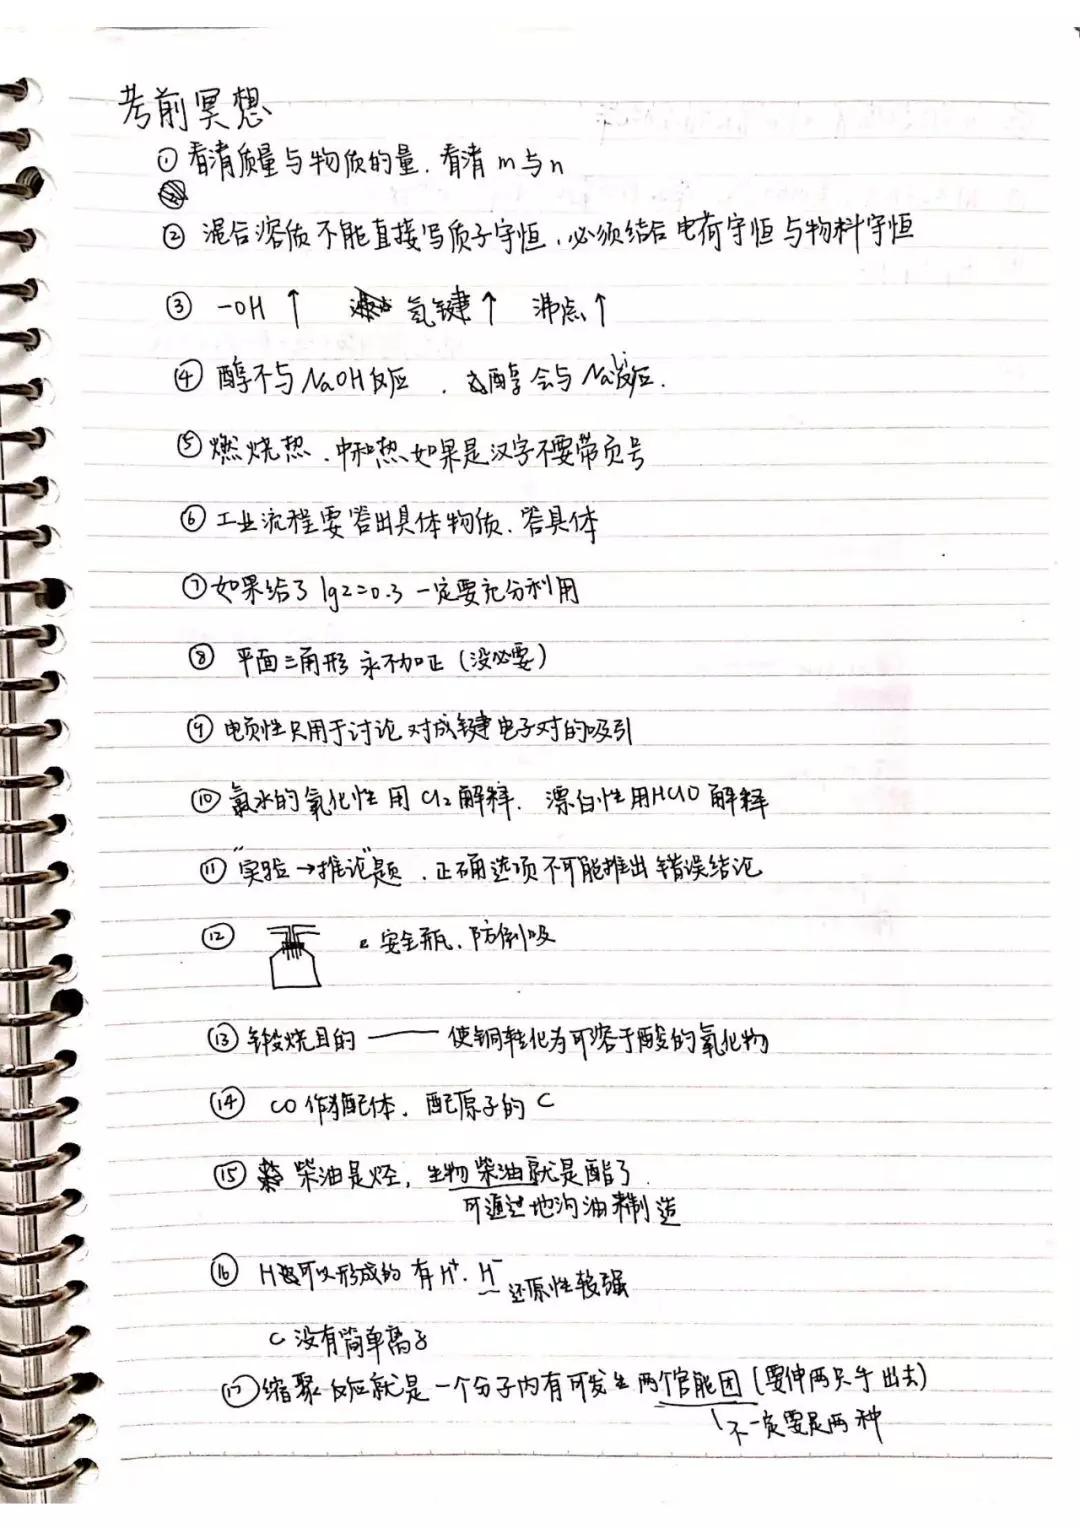 考前冥想
① 看清质量与物质的量.看清 m 与 n
② 混合溶质不能直接写质子守恒,必须结合电荷守恒与物料守恒
③ -OH ↑ 氢键↑ 沸点↑
④ 醇不与NaOH反应,醇会与Na反应.
⑤ 燃烧热、中和热如果是汉字不要带负号
⑥ 工业流程要答出具体物质.答具体
⑦ 如果给了 lg2=0.3 一定要充分利用
⑧ 平面三角形 永不加正(没必要)
⑨ 电负性只用于讨论对成键电子对的吸引
⑩ 氯水的氧化性用 Cl2解释. 漂白性用HClO 解释
⑪ "实验→推论"题.正确选项不可能推出错误结论
⑫ 安全瓶、防倒吸
⑬ 锻烧目的 —— 使铜转化为可溶于酸的氧化物
⑭ CO 作配体、配原子的 C
⑮ 柴油是烃,生物柴油就是酯了.
可通过地沟油来制造
⑯ H可以形成的有H⁺.H⁻ 还原性较强
C 没有简单离子
⑰ 缩聚反应就是一个分子内有可发生两个官能团(要伸两只手出去)
不一定要是两种